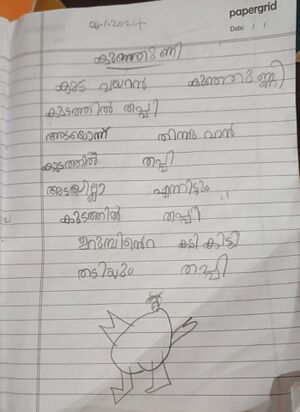 papergrid
Date: / /
06-1-2024
കുഞ്ഞുണ്ണി
കുട വയറൻ കുഞ്ഞുണ്ണി
കുടത്തിൽ തപ്പി
അടയൊന്ന് തിന്നുവാൻ
കുടത്തിൽ തപ്പി
അടയില്ലാ എന്നിട്ടും
കുടത്തിൽ തപ്പി
ഉറുമ്പിൻ്റെ കടികിട്ടി
തടിയും തപ്പി